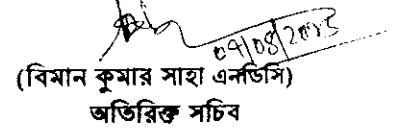 09/08/2015
(বিমান কুমার সাহা এনডিসি)
অতিরিক্ত সচিব